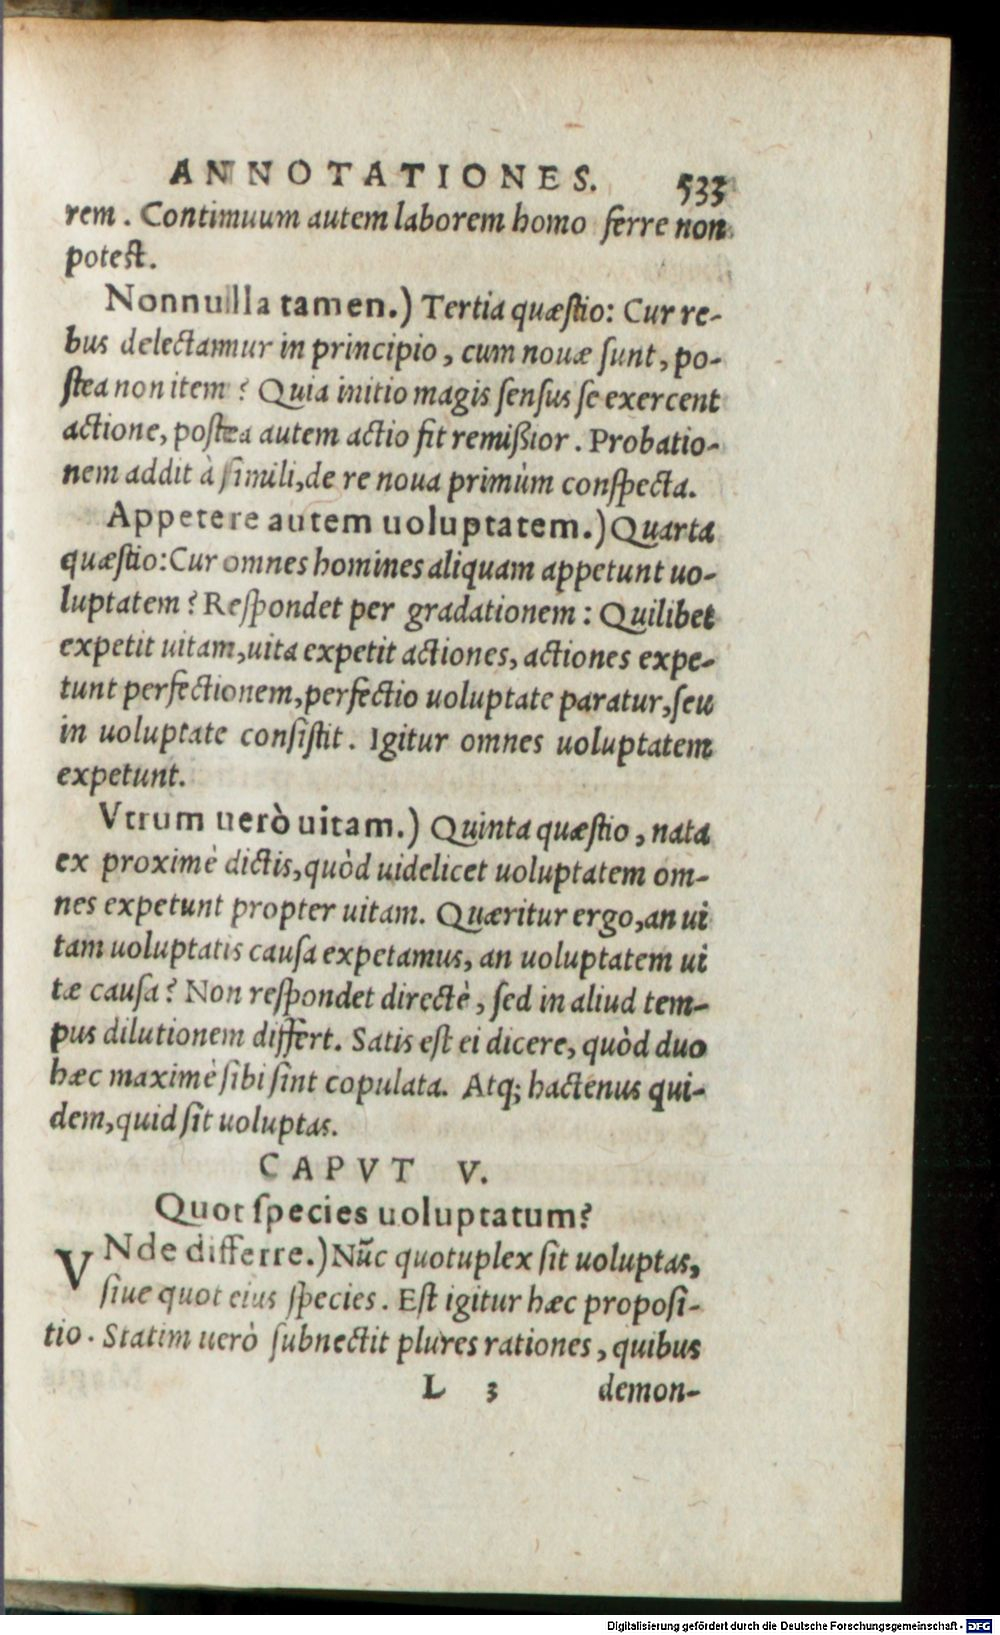 ANNOTATIONES. 533
rem. Contimuum autem laborem homo ferre non
potest.
Nonnulla tamen.) Tertia quæstio: Cur re-
bus delectamur in principio, cum nouæ sunt, po-
stea non item? Quia initio magis sensus se exercent
actione, postea autem actio fit remißior. Probatio-
nem addit à simili, de re noua primùm conspecta.
Appetere autem uoluptatem.) Quarta
quæstio: Cur omnes homines aliquam appetunt uo-
luptatem? Respondet per gradationem: Quilibet
expetit uitam, uita expetit actiones, actiones expe-
tunt perfectionem, perfectio uoluptate paratur, seu
in uoluptate consistit. Igitur omnes uoluptatem
expetunt.
Vtrum uerò uitam.) Quinta quæstio, nata
ex proximè dictis, quòd uidelicet uoluptatem om-
nes expetunt propter uitam. Quæritur ergo, an ui
tam uoluptatis causa expetamus, an uoluptatem ui
tæ causa? Non respondet directè, sed in aliud tem-
pus dilutionem differt. Satis est ei dicere, quòd duo
hæc maximè sibi sint copulata. Atq; hactenus qui-
dem, quid sit uoluptas.
CAPVT V.
Quot species uoluptatum?
VNde differre.) Nũc quotuplex sit uoluptas,
siue quot eius species. Est igitur hæc proposi-
tio. Statim uerò subnectit plures rationes, quibus
L 3 demon-
Digitalisierung gefördert durch die Deutsche Forschungsgemeinschaft - DFG